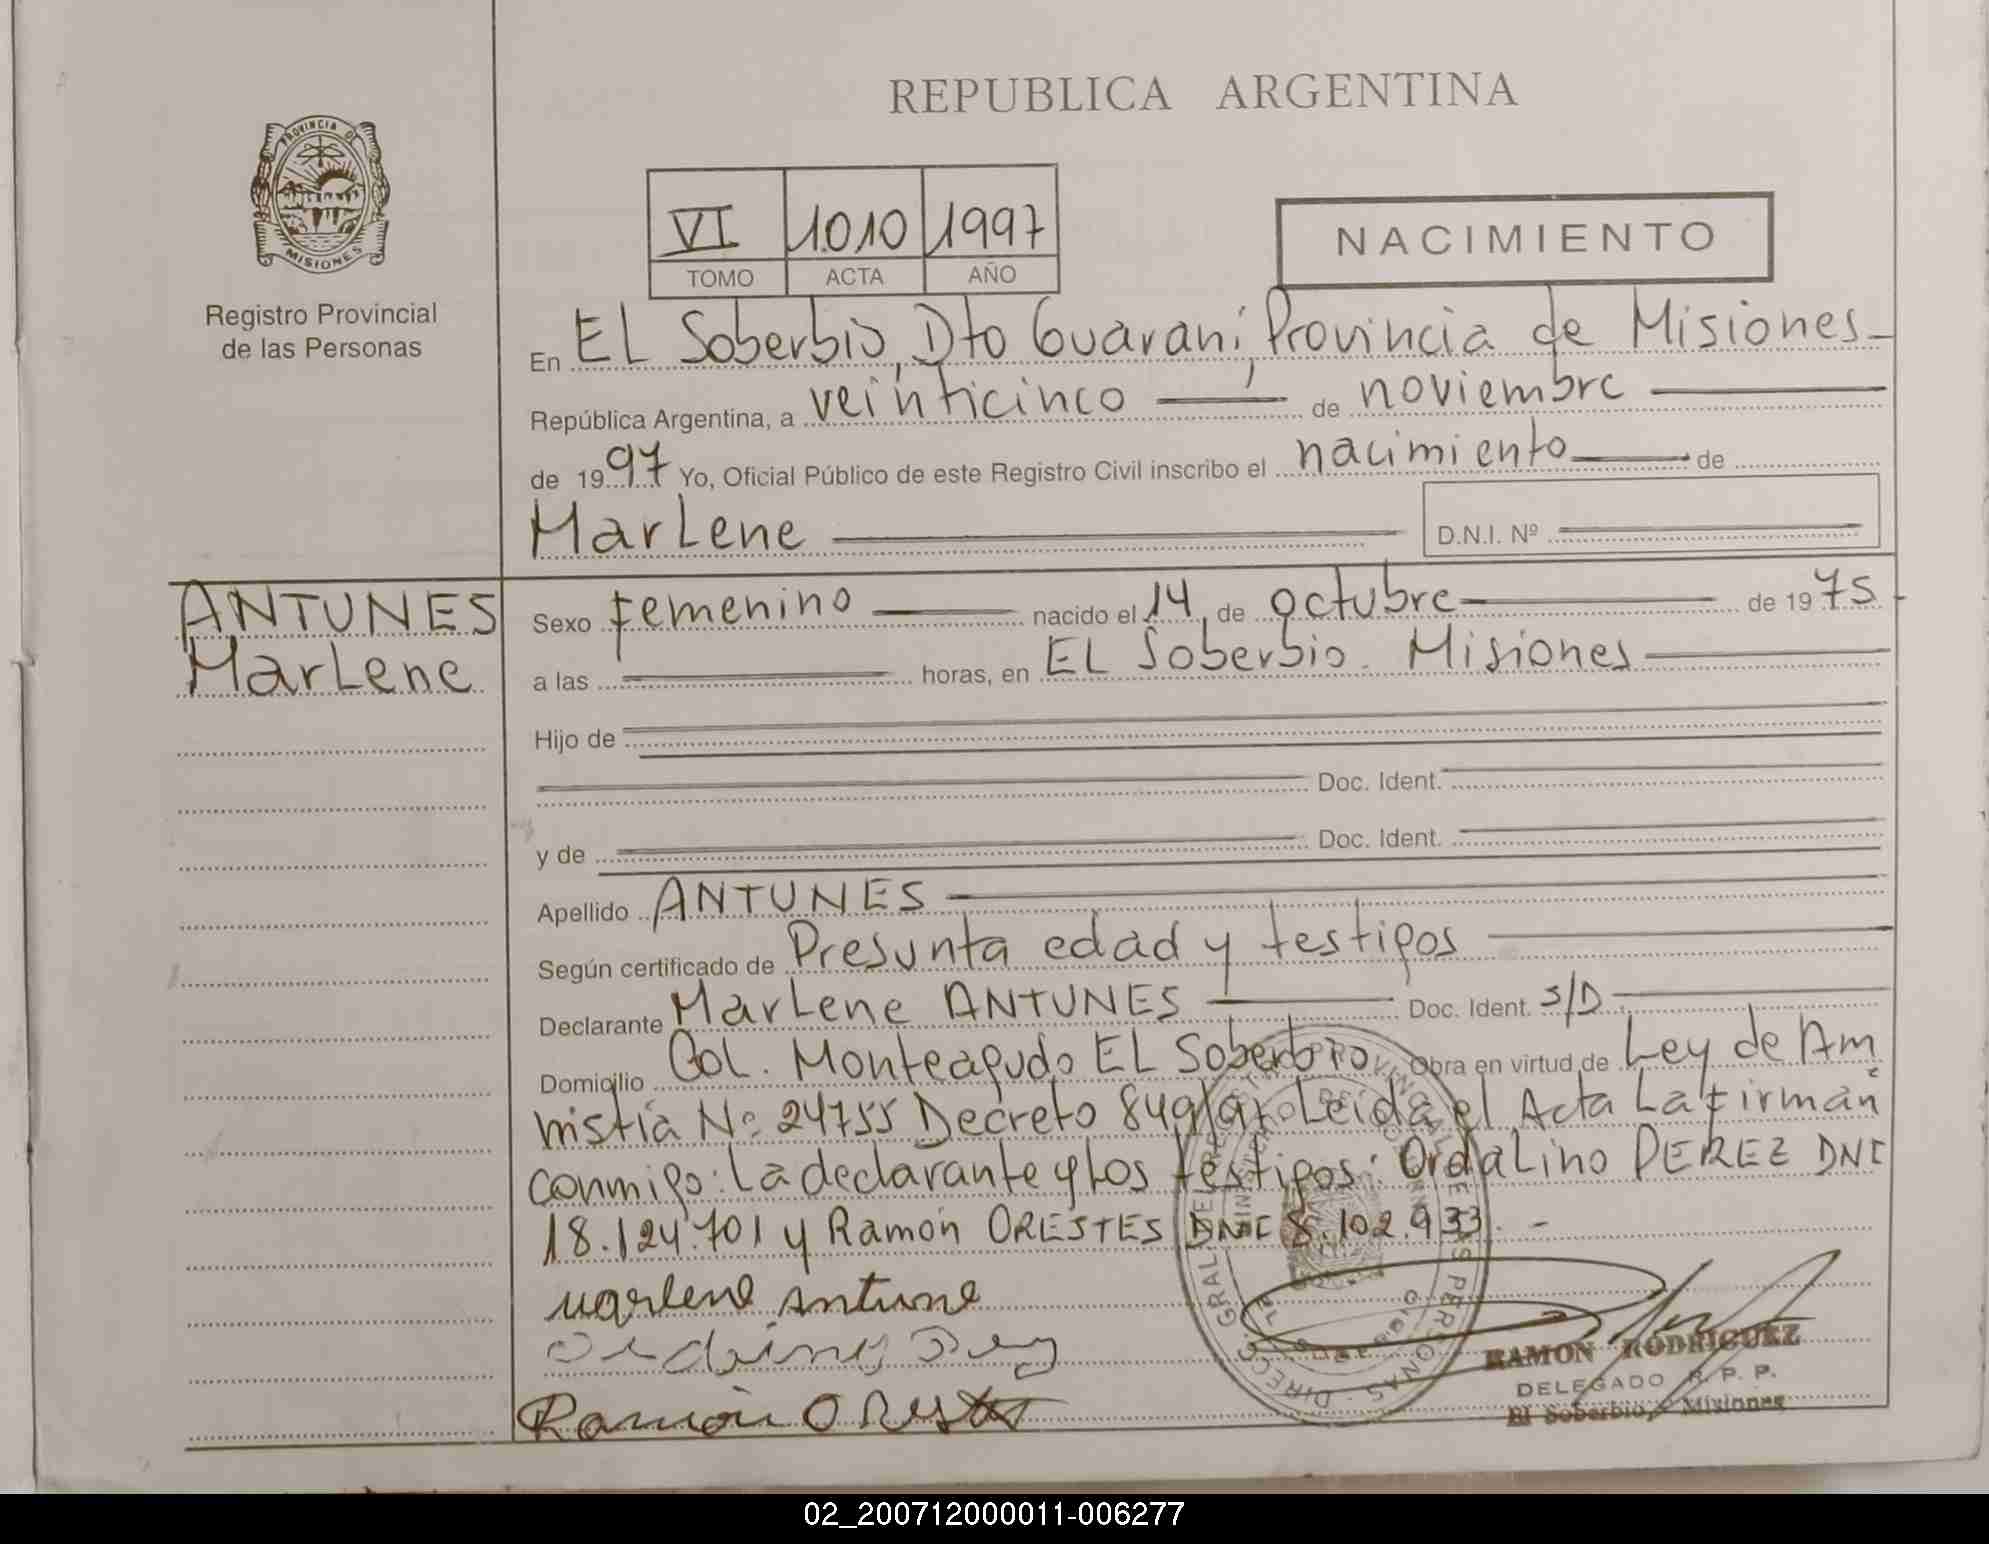 REPUBLICA ARGENTINA
PROVINCIA DE
MISIONES
Registro Provincial
de las Personas
VI 1010 1997
TOMO ACTA AÑO
NACIMIENTO
En EL Soberbio, Dto Guaraní, Provincia de Misiones
República Argentina, a veinticinco de noviembre
de 1997 Yo, Oficial Público de este Registro Civil inscribo el nacimiento de
MarLene D.N.I. Nº
ANTUNES
MarLene
Sexo Femenino nacido el 14 de octubre de 1975
a las horas, en EL Soberbio. Misiones
Hijo de
Doc. Ident.
y de Doc. Ident.
Apellido ANTUNES
Según certificado de Presunta edad y testigos
Declarante MarLene ANTUNES Doc. Ident. S/D
Domicilio Col. Monteagudo EL Soberbio Obra en virtud de Ley de Am
nistía Nº 24755 Decreto 849/97 Leida el Acta La firman
conmigo: La declarante y Los testigos: OrdaLino PEREZ DNI
18.124.701 y Ramón ORESTES DNI 8.102.933. -
Marlene Antune
Ramón Orestes
RAMON RODRIGUEZ
DELEGADO R. P. P.
El Soberbio, Misiones
02_200712000011-006277